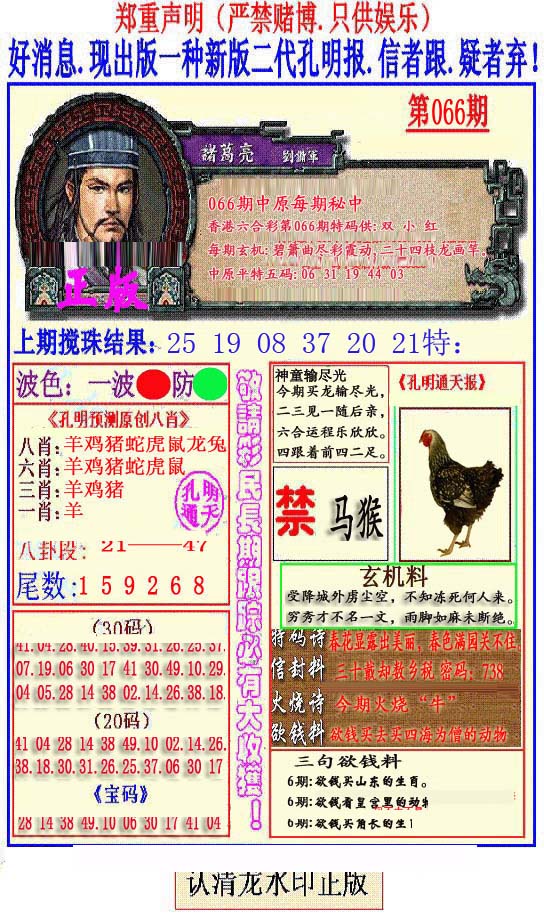 郑重声明（严禁赌博.只供娱乐）
好消息.现出版一种新版二代孔明报.信者跟.疑者弃！
第066期
諸葛亮 劉備軍
066期中原每期秘中
香港六合彩第066期特码供: 双 小 红
每期玄机: 碧箫曲尽彩霞动，二十四枝龙画竿。
中原平特五码: 06 31 19 44 03
正版
上期搅珠结果: 25 19 08 37 20 21特:
波色：一波 防
《孔明预测原创八肖》
八肖: 羊鸡猪蛇虎鼠龙兔
六肖: 羊鸡猪蛇虎鼠
三肖: 羊鸡猪
一肖: 羊
孔明通天
八卦段： 21——47
尾数: 1 5 9 2 6 8
敬請彩民長期跟踪必有大收獲！
神童输尽光
今期买龙输尽光，
二三见一随后亲，
六合运程乐欣欣。
四跟着前四二足。
《孔明通天报》
禁 马猴
玄机料
受降城外虏尘空，不知冻死何人来。
穷秀才不名一文，雨脚如麻未断绝。
(30码)
41.04.28.40.15.39.31.26.25.37.
07.19.06 30 17 41 30.49.10.29.
04 05.28 14 38 02.14.26 38.18.
(20码)
41 04 28 14 38 49.10 02.14.26.
38.18.30.31.26.25.37.06 30 17
《宝码》
28 14 38 49.10 06 30 17 41 04
特码诗 春花显露出美丽，春色满园关不住
信封料 三十载却数乡税 密码：738
火烧诗 今期火烧“牛”
欲钱料 欲钱买去买四海为僧的动物
三句欲钱料
6期:欲钱买山东的生肖。
6期:欲钱看皇宫里的动物
6期:欲钱买角长的生
认清龙水印正版